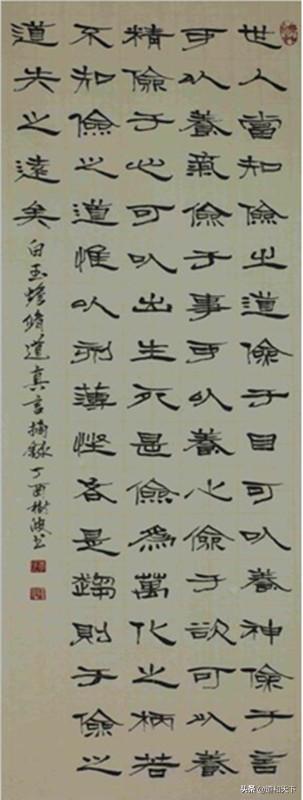 世人當知儉之道儉于目可以養神儉于言
可以養氣儉于事可以養心儉于欲可以養
精儉于心可以出生死是儉為萬化之柄若
不知儉之道惟以刻薄慳吝是趨則于儉之
道失之遠矣
白玉蟾脩道真言摘錄 丁酉樹波書
头条 @和天下